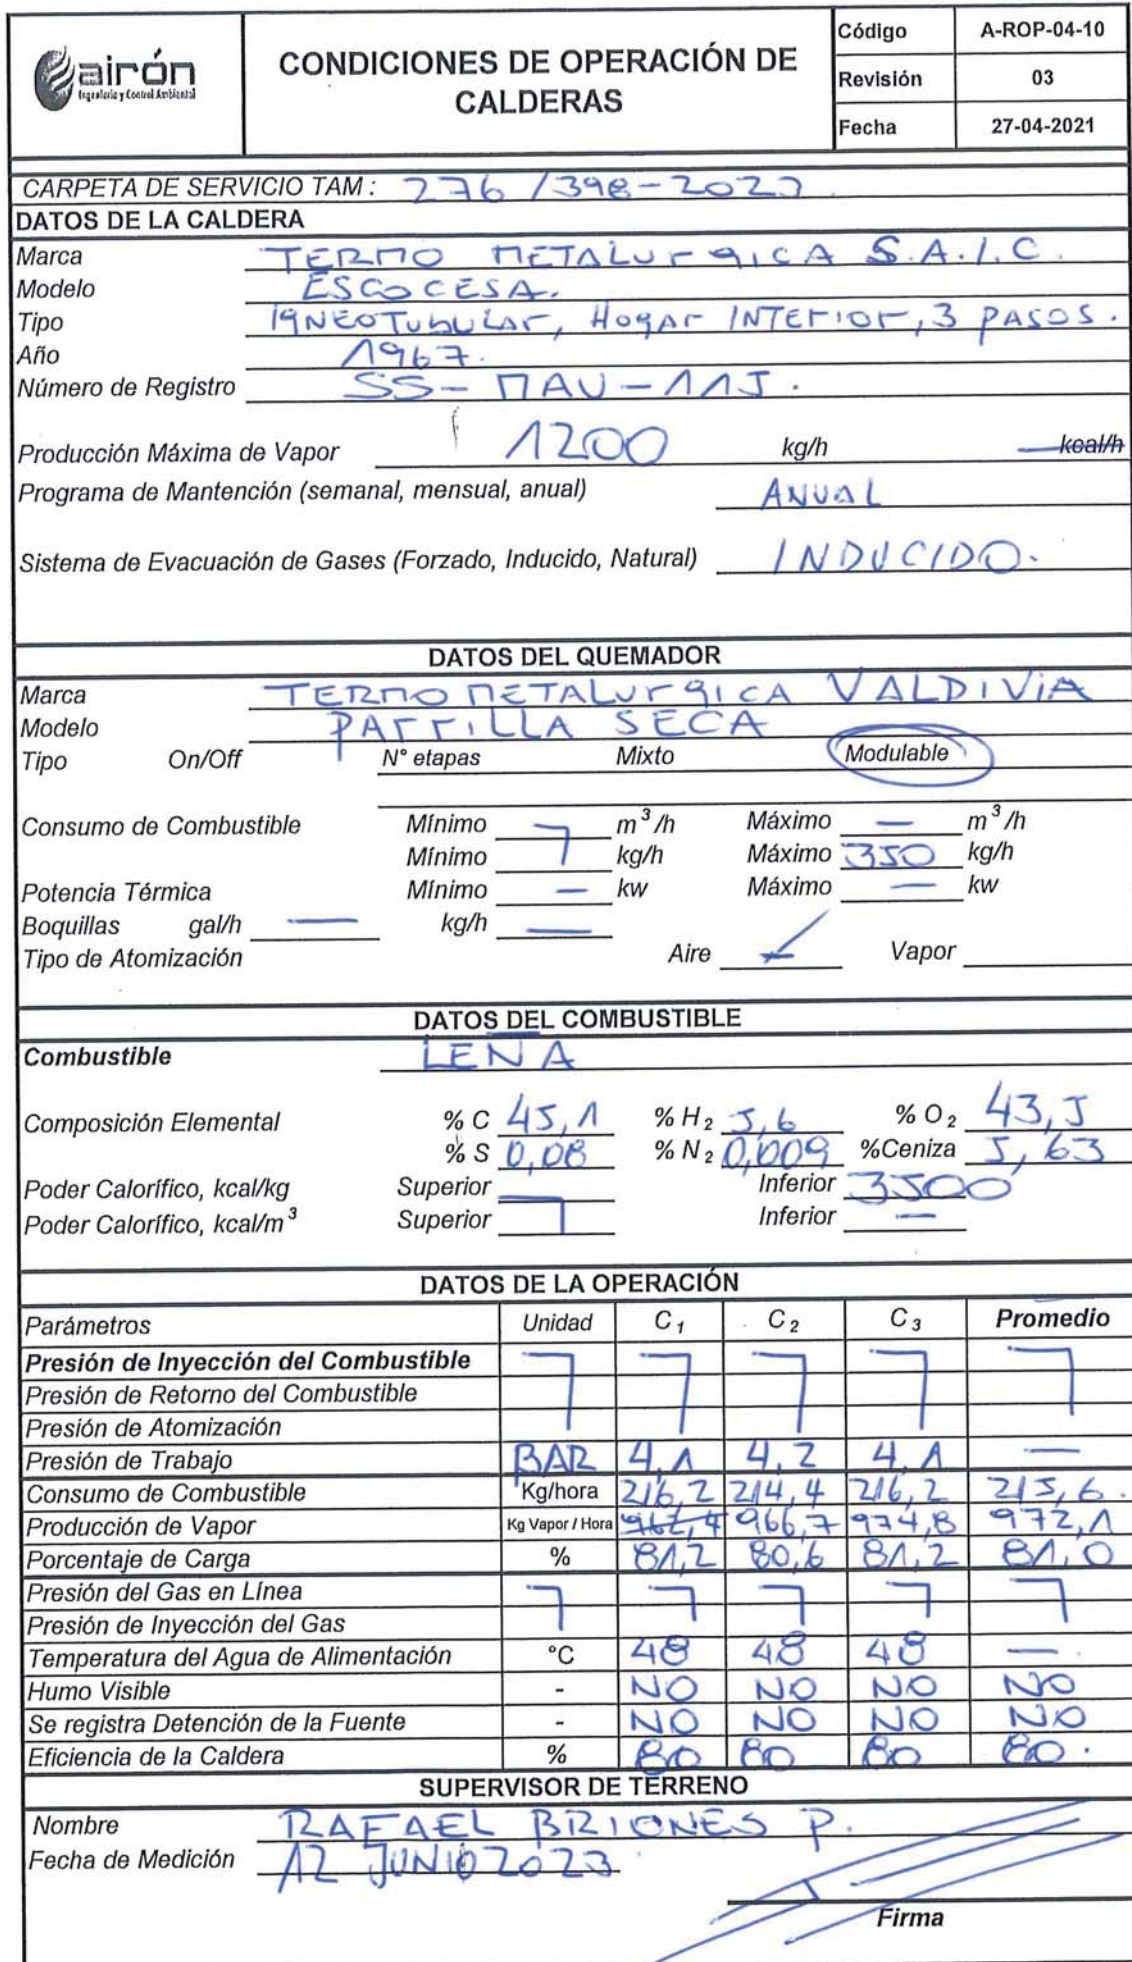 airón
Ingeniería y Control Ambiental
CONDICIONES DE OPERACIÓN DE
CALDERAS
Código A-ROP-04-10
Revisión 03
Fecha 27-04-2021
CARPETA DE SERVICIO TAM : 276 / 398-2023
DATOS DE LA CALDERA
Marca TERMO METALURGICA S.A.I.C.
Modelo ESCOCESA.
Tipo IGNEOTUBULAR, HOGAR INTERIOR, 3 PASOS.
Año 1967.
Número de Registro SS-MAU-115.
Producción Máxima de Vapor 1200 kg/h kcal/h
Programa de Mantención (semanal, mensual, anual) ANUAL
Sistema de Evacuación de Gases (Forzado, Inducido, Natural) INDUCIDO.
DATOS DEL QUEMADOR
Marca TERMO METALURGICA VALDIVIA
Modelo PARRILLA SECA
Tipo On/Off N° etapas Mixto Modulable
Consumo de Combustible Mínimo — m³/h Máximo — m³/h
Mínimo kg/h Máximo 350 kg/h
Potencia Térmica Mínimo — kw Máximo — kw
Boquillas gal/h — kg/h —
Tipo de Atomización Aire ✓ Vapor
DATOS DEL COMBUSTIBLE
Combustible LEÑA
Composición Elemental % C 45,1 % H₂ 5,6 % O₂ 43,5
% S 0,08 % N₂ 0,009 %Ceniza 5,63
Poder Calorífico, kcal/kg Superior Inferior 3500
Poder Calorífico, kcal/m³ Superior Inferior —
DATOS DE LA OPERACIÓN
Parámetros Unidad C₁ C₂ C₃ Promedio
Presión de Inyección del Combustible
Presión de Retorno del Combustible
Presión de Atomización
Presión de Trabajo BAR 4,1 4,2 4,1 —
Consumo de Combustible Kg/hora 216,2 214,4 216,2 215,6.
Producción de Vapor Kg Vapor / Hora 966,7 974,8 972,1
Porcentaje de Carga % 81,2 80,6 81,2 81,0
Presión del Gas en Línea
Presión de Inyección del Gas
Temperatura del Agua de Alimentación °C 48 48 48 —
Humo Visible - NO NO NO NO
Se registra Detención de la Fuente - NO NO NO NO
Eficiencia de la Caldera % 80 80 80 80.
SUPERVISOR DE TERRENO
Nombre RAFAEL BRIONES P.
Fecha de Medición 12 JUNIO 2023
Firma